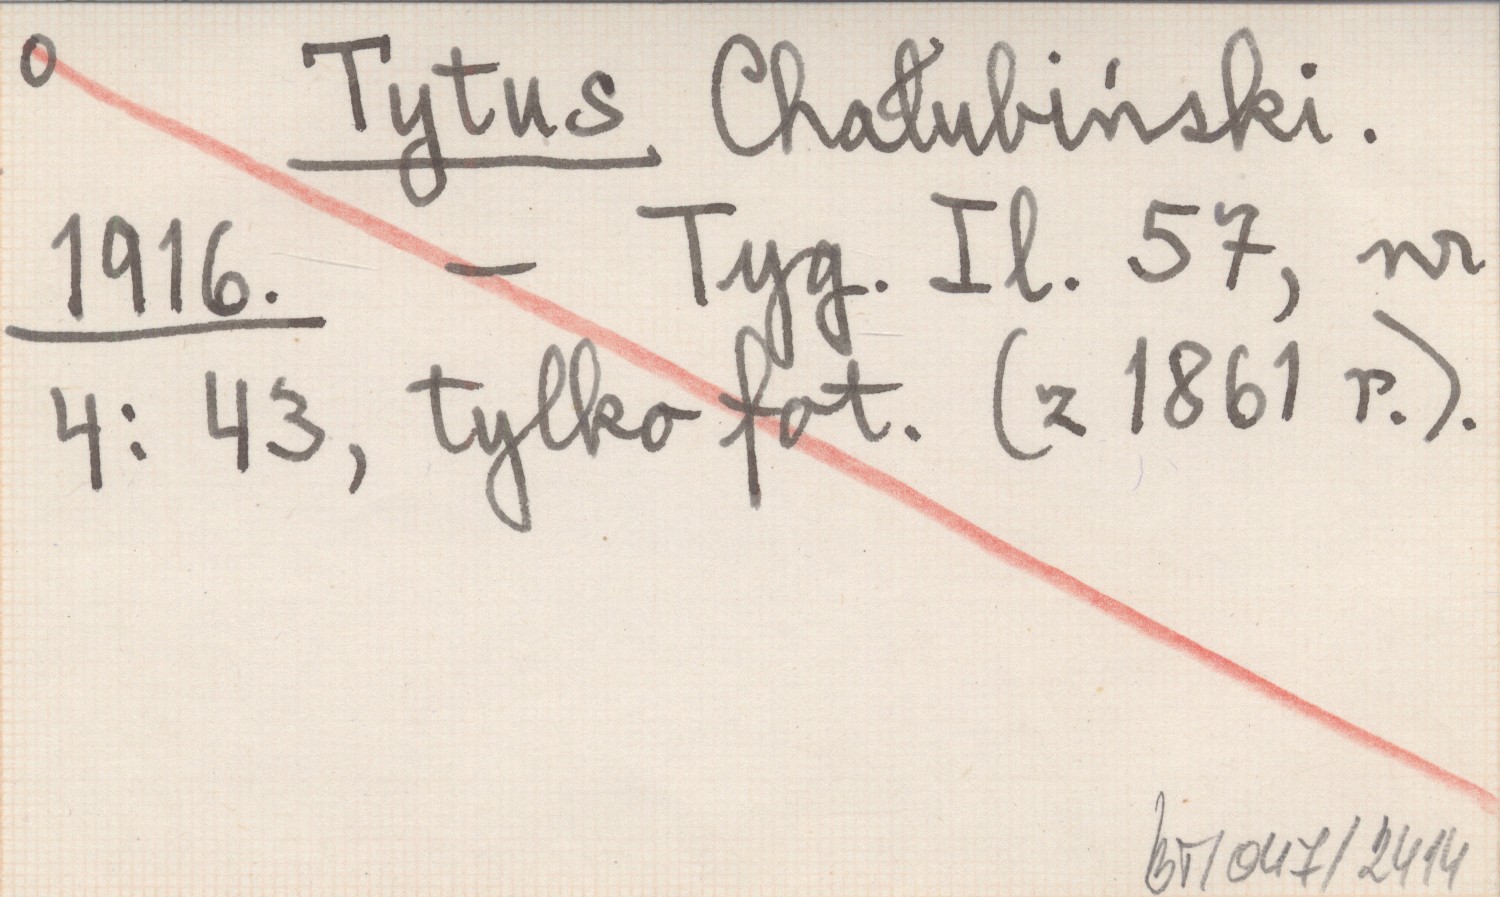 o Tytus Chałubiński.
1916. – Tyg. Il. 57, nr
4: 43, tylko fot. (z 1861 r.).
BT/047/2414